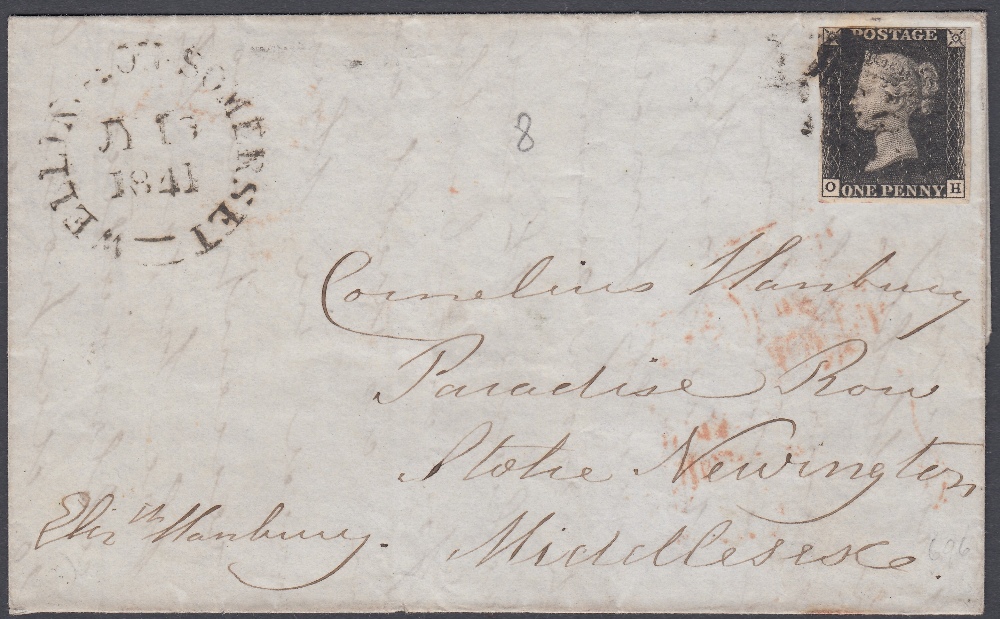 WELLINGTON.SOMERSET
1841
8
POSTAGE
O ONE PENNY H
Cornelius Hanbury
Paradise Row
Stoke Newington
Middlesex
Elizth Hanbury.